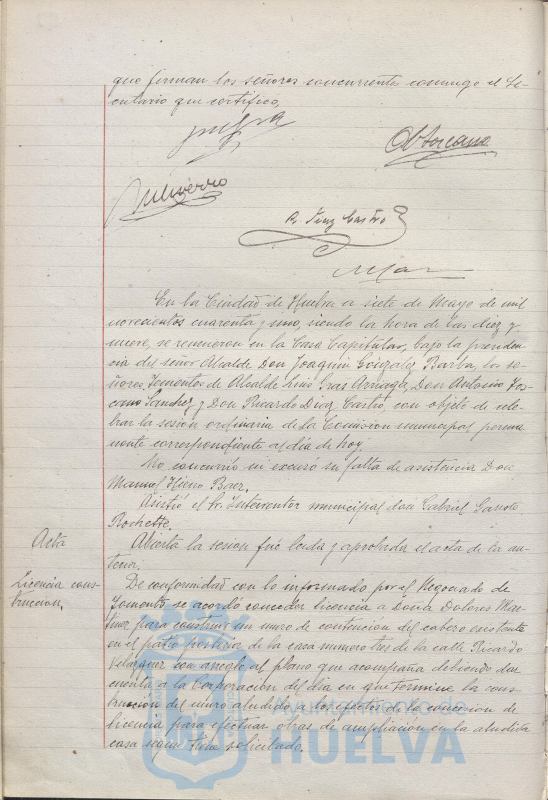 que firman los señores concurrentes conmigo el Se-
cretario que certifico,
R. Diaz Castro
En la Ciudad de Huelva a siete de Mayo de mil
novecientos cuarenta y uno, siendo la hora de las diez y
nueve, se reunieron en la Casa Capitular, bajo la presiden-
cia del señor Alcalde, Don Joaquin Gonzalez Barba, los se-
ñores Tenientes de Alcalde Luis Gras Arriaga, Don Antonio Tos-
cano Sanchez y Don Ricardo Diaz Castro, con objeto de cele-
brar la sesion ordinaria de la Comision municipal perma
nente correspondiente al dia de hoy.
No concurrio ni excuso su falta de asistencia Don
Manuel Hierro Baez.
Asistió el Sr. Interventor municipal don Gabriel
Rochette.
Acta
Abierta la sesion fué leida y aprobada el acta de la an-
terior.
Licencia cons-
truccion,
De conformidad con lo informado por el Negociado de
Fomento se acordo conceder licencia a Doña Dolores Mar-
tinez para construir un muro de contencion del cabezo existente
en el patio posterior de la casa numero tres de la calle Ricardo
Velazquez con arreglo al plano que acompaña debiendo dar
cuenta a la Corporacion del dia en que termine la cons-
truccion del muro aludido a los efectos de la concesion de
licencia para efectuar obras de ampliación en la aludida
casa segun tiene solicitado.
HUELVA